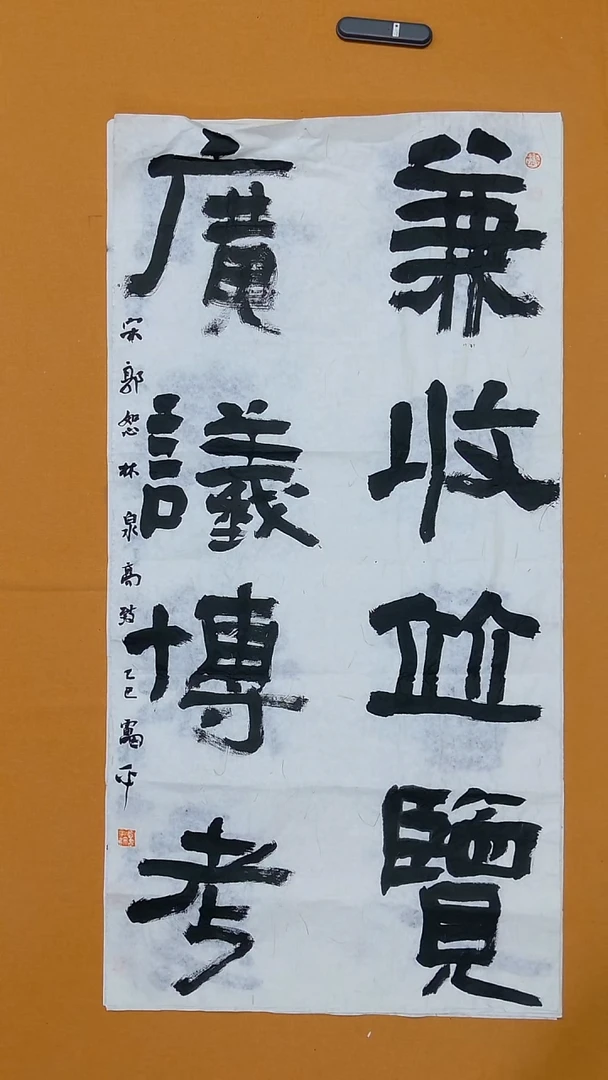 兼收並覽
廣議博考
宋郭恕林泉高致乙巳